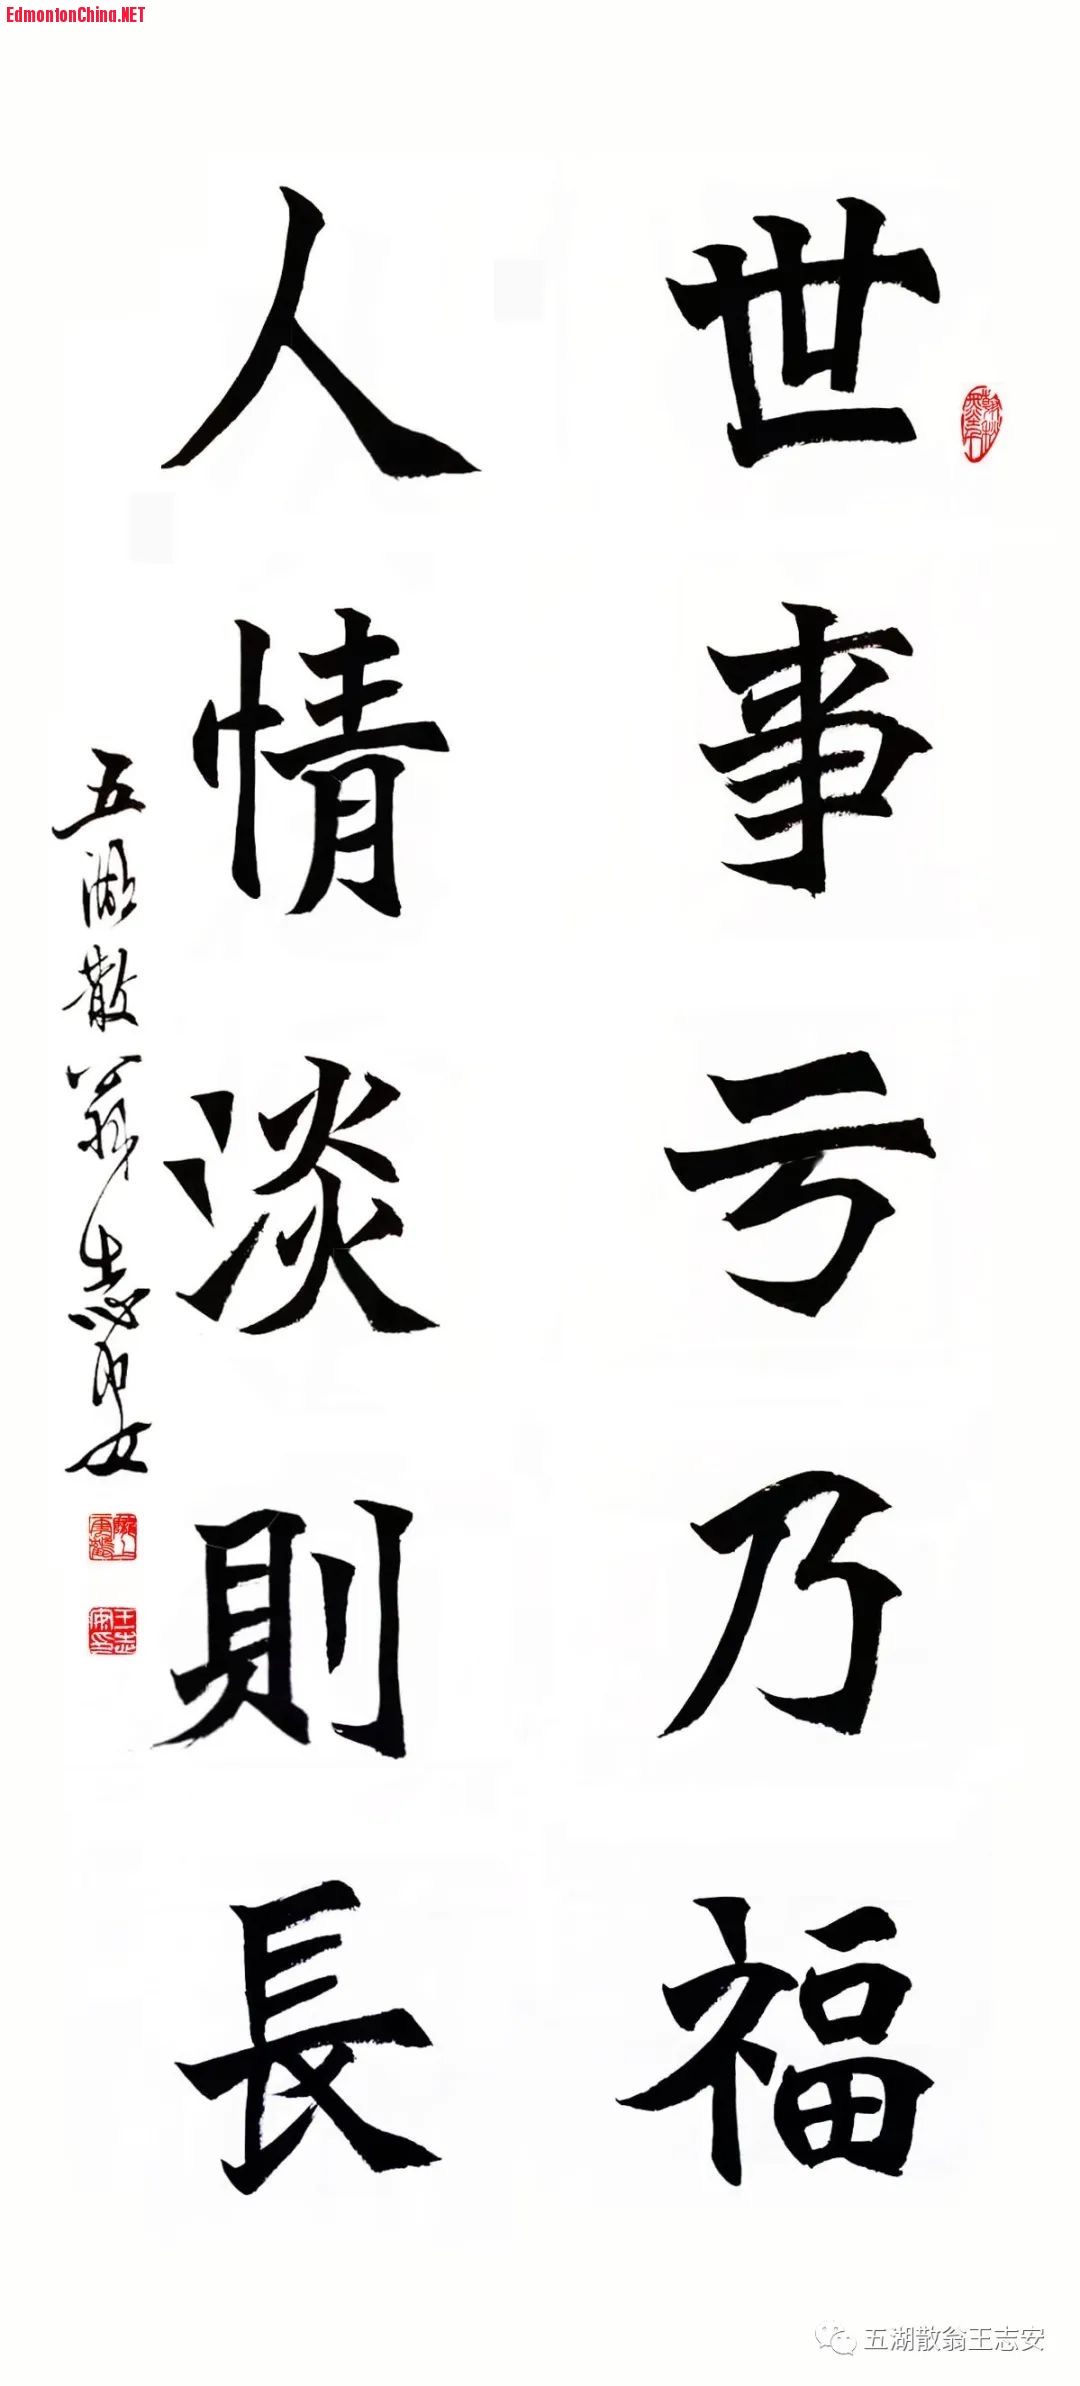 EdmontonChina.NET
世事亏乃福
人情淡則長
五湖散翁志安
王志安印
五湖散翁王志安